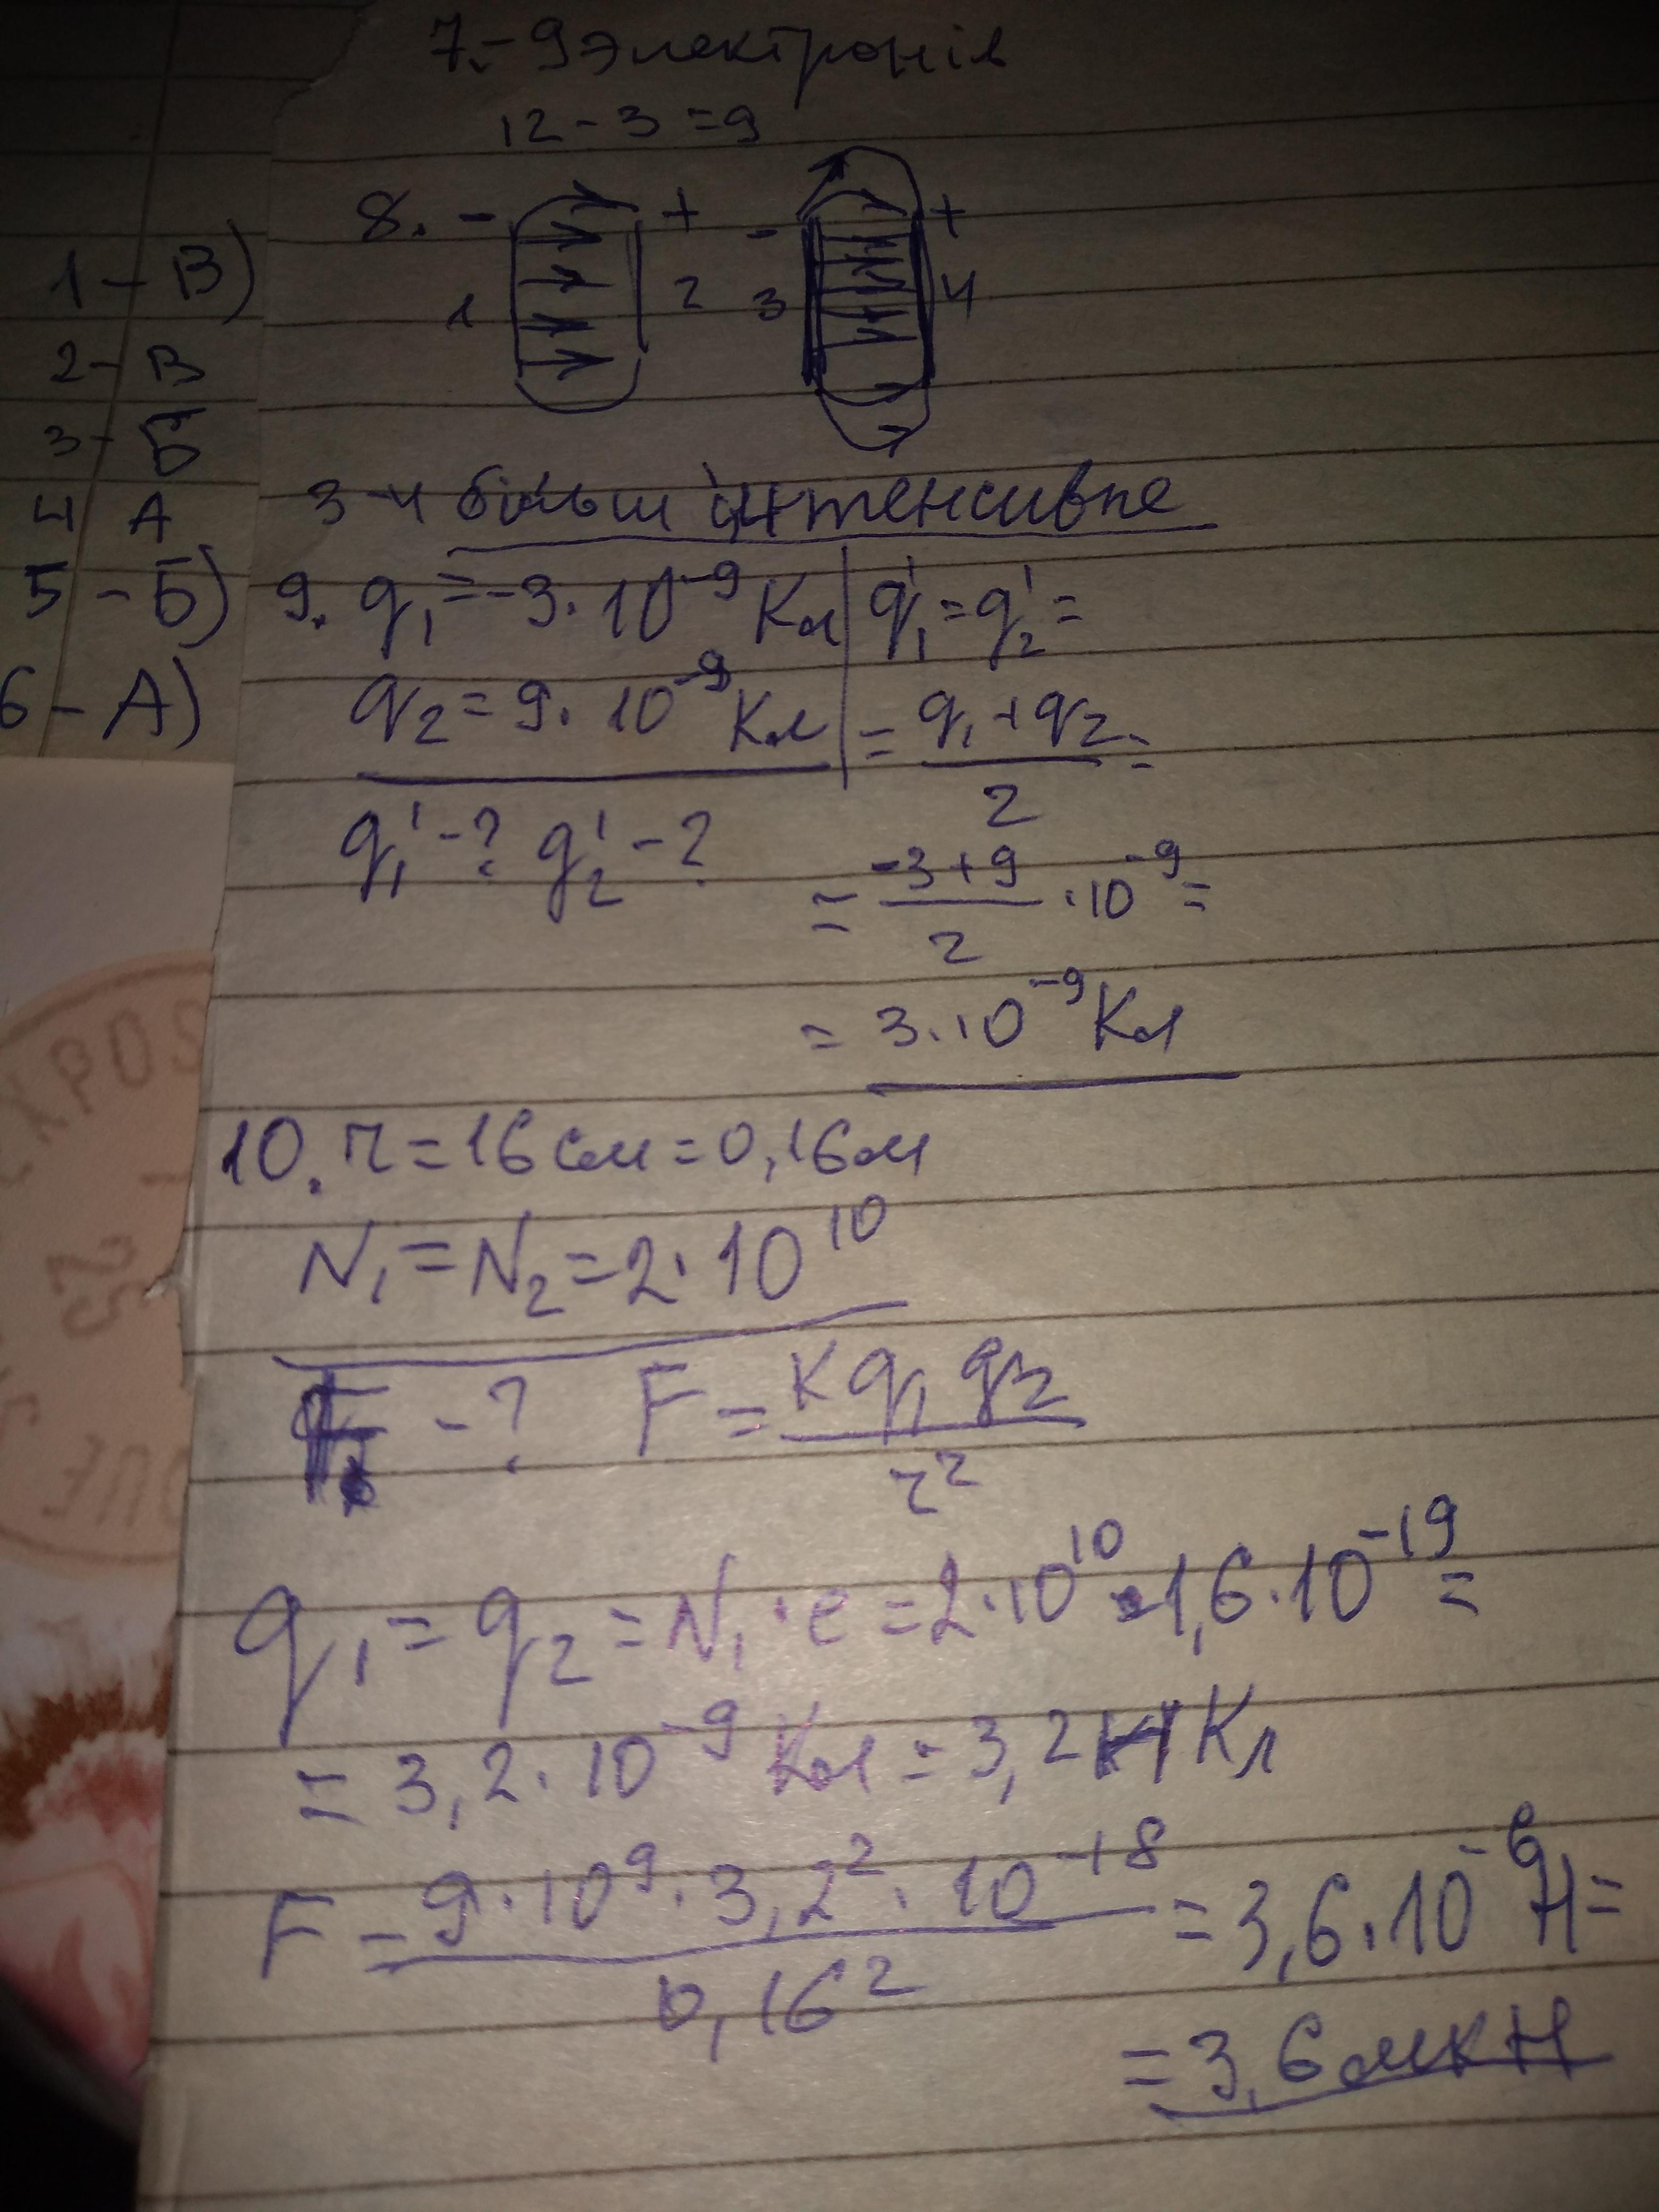 7. – 9 электронів
12 – 3 = 9
8. – + – +
1 2 3 4
1 – В)
2 – В
3 – Б
4 А
5 – Б)
6 – А)
3-4 більш інтенсивне
9. q₁ = -3 · 10⁻⁹ Кл | q₁' = q₂' =
q₂ = 9 · 10⁻⁹ Кл | = (q₁ + q₂)/2 =
q₁' – ? q₂' – ?
= (-3 + 9)/2 · 10⁻⁹ =
= 3 · 10⁻⁹ Кл
10. r = 16 см = 0,16 м
N₁ = N₂ = 2 · 10¹⁰
F – ? F = (k q₁ q₂)/r²
q₁ = q₂ = N₁ · e = 2 · 10¹⁰ · 1,6 · 10⁻¹⁹ =
= 3,2 · 10⁻⁹ Кл = 3,2 Кл
F = (9 · 10⁹ · 3,2² · 10⁻¹⁸)/0,16² = 3,6 · 10⁻⁶ Н =
= 3,6 мкН
EXPOS
25